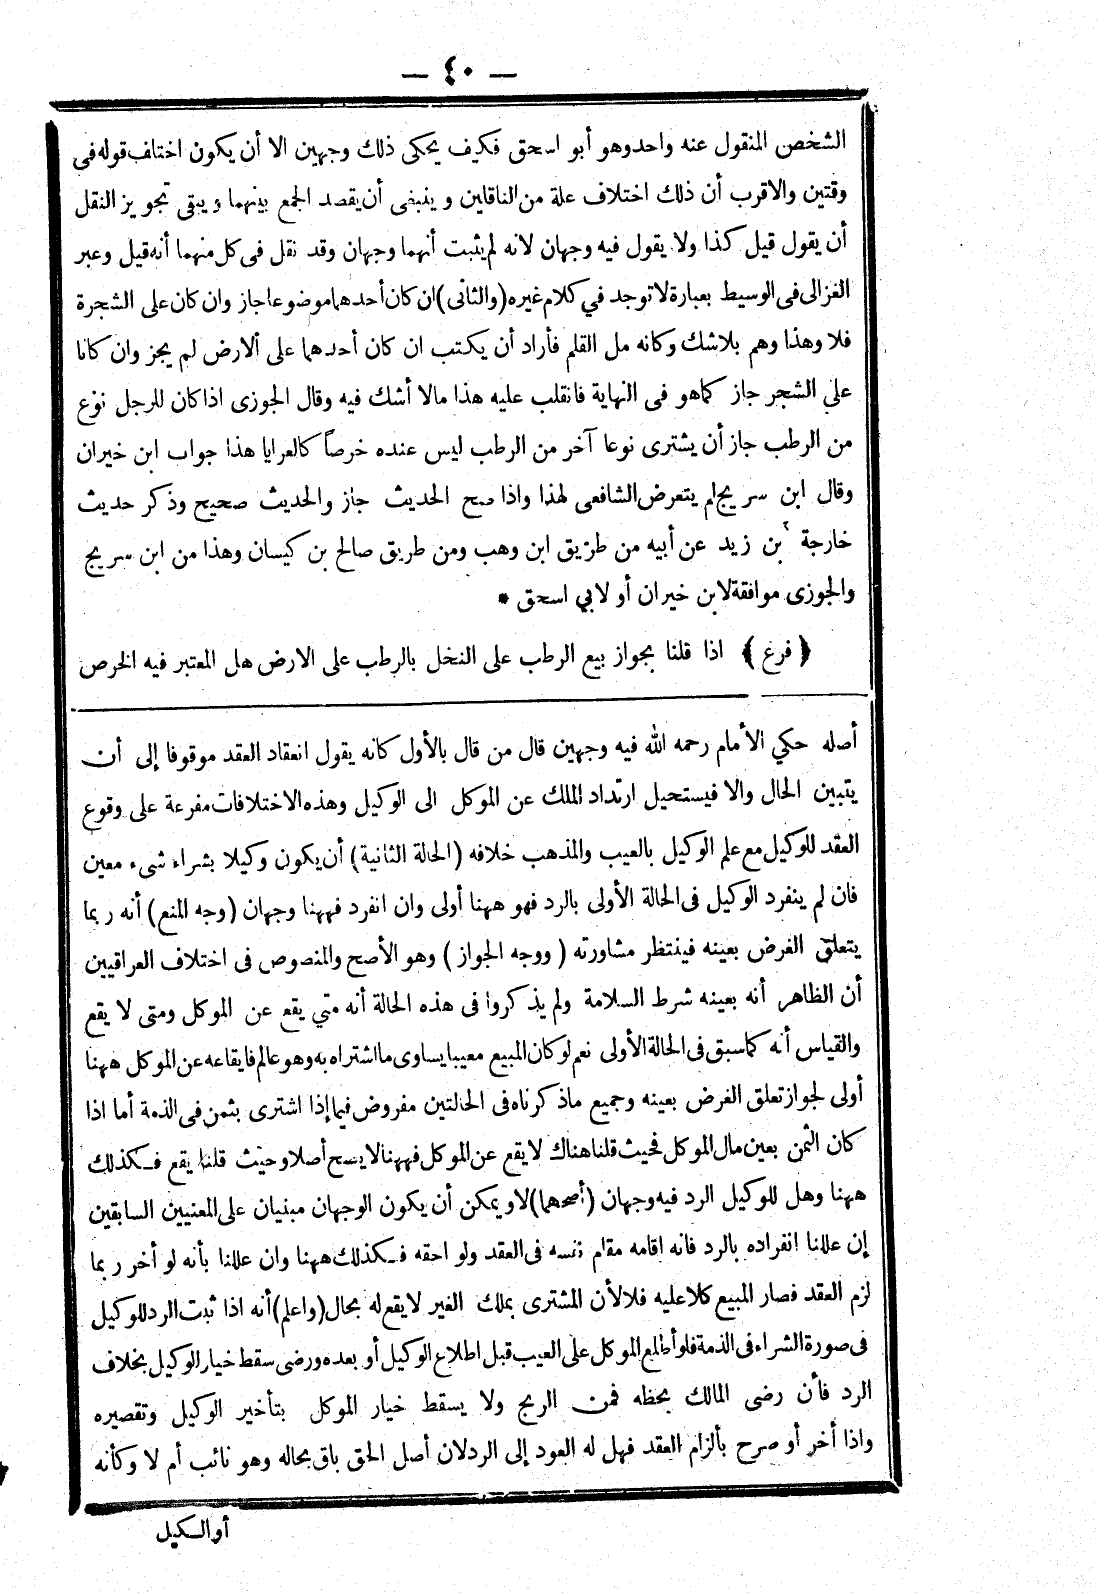 — ٤٠ —
الشخص المنقول عنه واحد وهو أبو اسحق فكيف يحكى ذلك وجهين الا أن يكون اختلف قوله فى
وقتين والاقرب أن ذلك اختلاف علة من الناقلين وينبغى أن يقصد الجمع بينهما ويبقى تجويز النقل
أن يقول قيل كذا ولا يقول فيه وجهان لانه لم يثبت أنهما وجهان وقد نقل فى كل منهما أنه قيل وعبر
الغزالى فى الوسيط بعبارة لا توجد في كلام غيره (والثانى) ان كان أحدهما موضوعا جاز وان كان على الشجرة
فلا وهذا وهم بلاشك وكانه مل القلم فأراد أن يكتب ان كان أحدهما على ألارض لم يجز وان كانا
علي الشجر جاز كما هو فى النهاية فانقلب عليه هذا مالا أشك فيه وقال الجوزى اذا كان للرجل نوع
من الرطب جاز أن يشترى نوعا آخر من الرطب ليس عنده خرصاً كالعرايا هذا جواب ابن خيران
وقال ابن سريج لم يتعرض الشافعى لهذا واذا صح الحديث جاز والحديث صحيح وذكر حديث
خارجة بن زيد عن أبيه من طريق ابن وهب ومن طريق صالح بن كيسان وهذا من ابن سريج
والجوزى موافقة لابن خيران أو لابي اسحق *
﴿ فرع ﴾ اذا قلنا بجواز بيع الرطب على النخل بالرطب على الارض هل المعتبر فيه الخرص
أصله حكي الأمام رحمه الله فيه وجهين قال من قال بالأول كانه يقول انعقاد العقد موقوفا إلى أن
يتبين الحال والا فيستحيل ارتداد الملك عن الموكل الى الوكيل وهذه الاختلافات مفرعة على وقوع
العقد للوكيل مع علم الوكيل بالعيب والمذهب خلافه (الحالة الثانية) أن يكون وكيلا بشراء شىء معين
فان لم ينفرد الوكيل فى الحالة الأولى بالرد فهو ههنا أولى وان انفرد فههنا وجهان (وجه المنع) أنه ربما
يتعلق الغرض بعينه فينتظر مشاورته (ووجه الجواز) وهو الأصح والمنصوص فى اختلاف العراقيين
أن الظاهر أنه بعينه شرط السلامة ولم يذكروا فى هذه الحالة أنه متي يقع عن الموكل ومتى لا يقع
والقياس أنه كما سبق فى الحالة الأولى نعم لو كان المبيع معيبا يساوى ما اشتراه به وهو عالم فايقاعه عن الموكل ههنا
أولى لجواز تعلق الغرض بعينه وجميع ماذكرناه فى الحالتين مفروض فيما إذا اشترى بثمن فى الذمة أما اذا
كان الثمن بعين مال الموكل فحيث قلنا هناك لا يقع عن الموكل فههنا لا يصح أصلا وحيث قلنا يقع فكذلك
ههنا وهل للوكيل الرد فيه وجهان (أصحهما) لا ويمكن أن يكون الوجهان مبنيان على المعنيين السابقين
إن عللنا انفراده بالرد فانه اقامه مقام نفسه فى العقد ولواحقه فكذلك ههنا وان عللنا بأنه لو أخر ربما
لزم العقد فصار المبيع كلا عليه فلا لأن المشترى بملك الغير لا يقع له بحال (واعلم) أنه اذا ثبت الرد للوكيل
فى صورة الشراء فى الذمة فلو أطلع الموكل على العيب قبل اطلاع الوكيل أو بعده ورضى سقط خيار الوكيل بخلاف
الرد فأن رضى المالك بحظه فمن الربح ولا يسقط خيار الموكل بتأخير الوكيل وتقصيره
واذا أخر أو صرح بألزام العقد فهل له العود إلى الرد لان أصل الحق باق بحاله وهو نائب أم لا وكأنه
أو الكيل